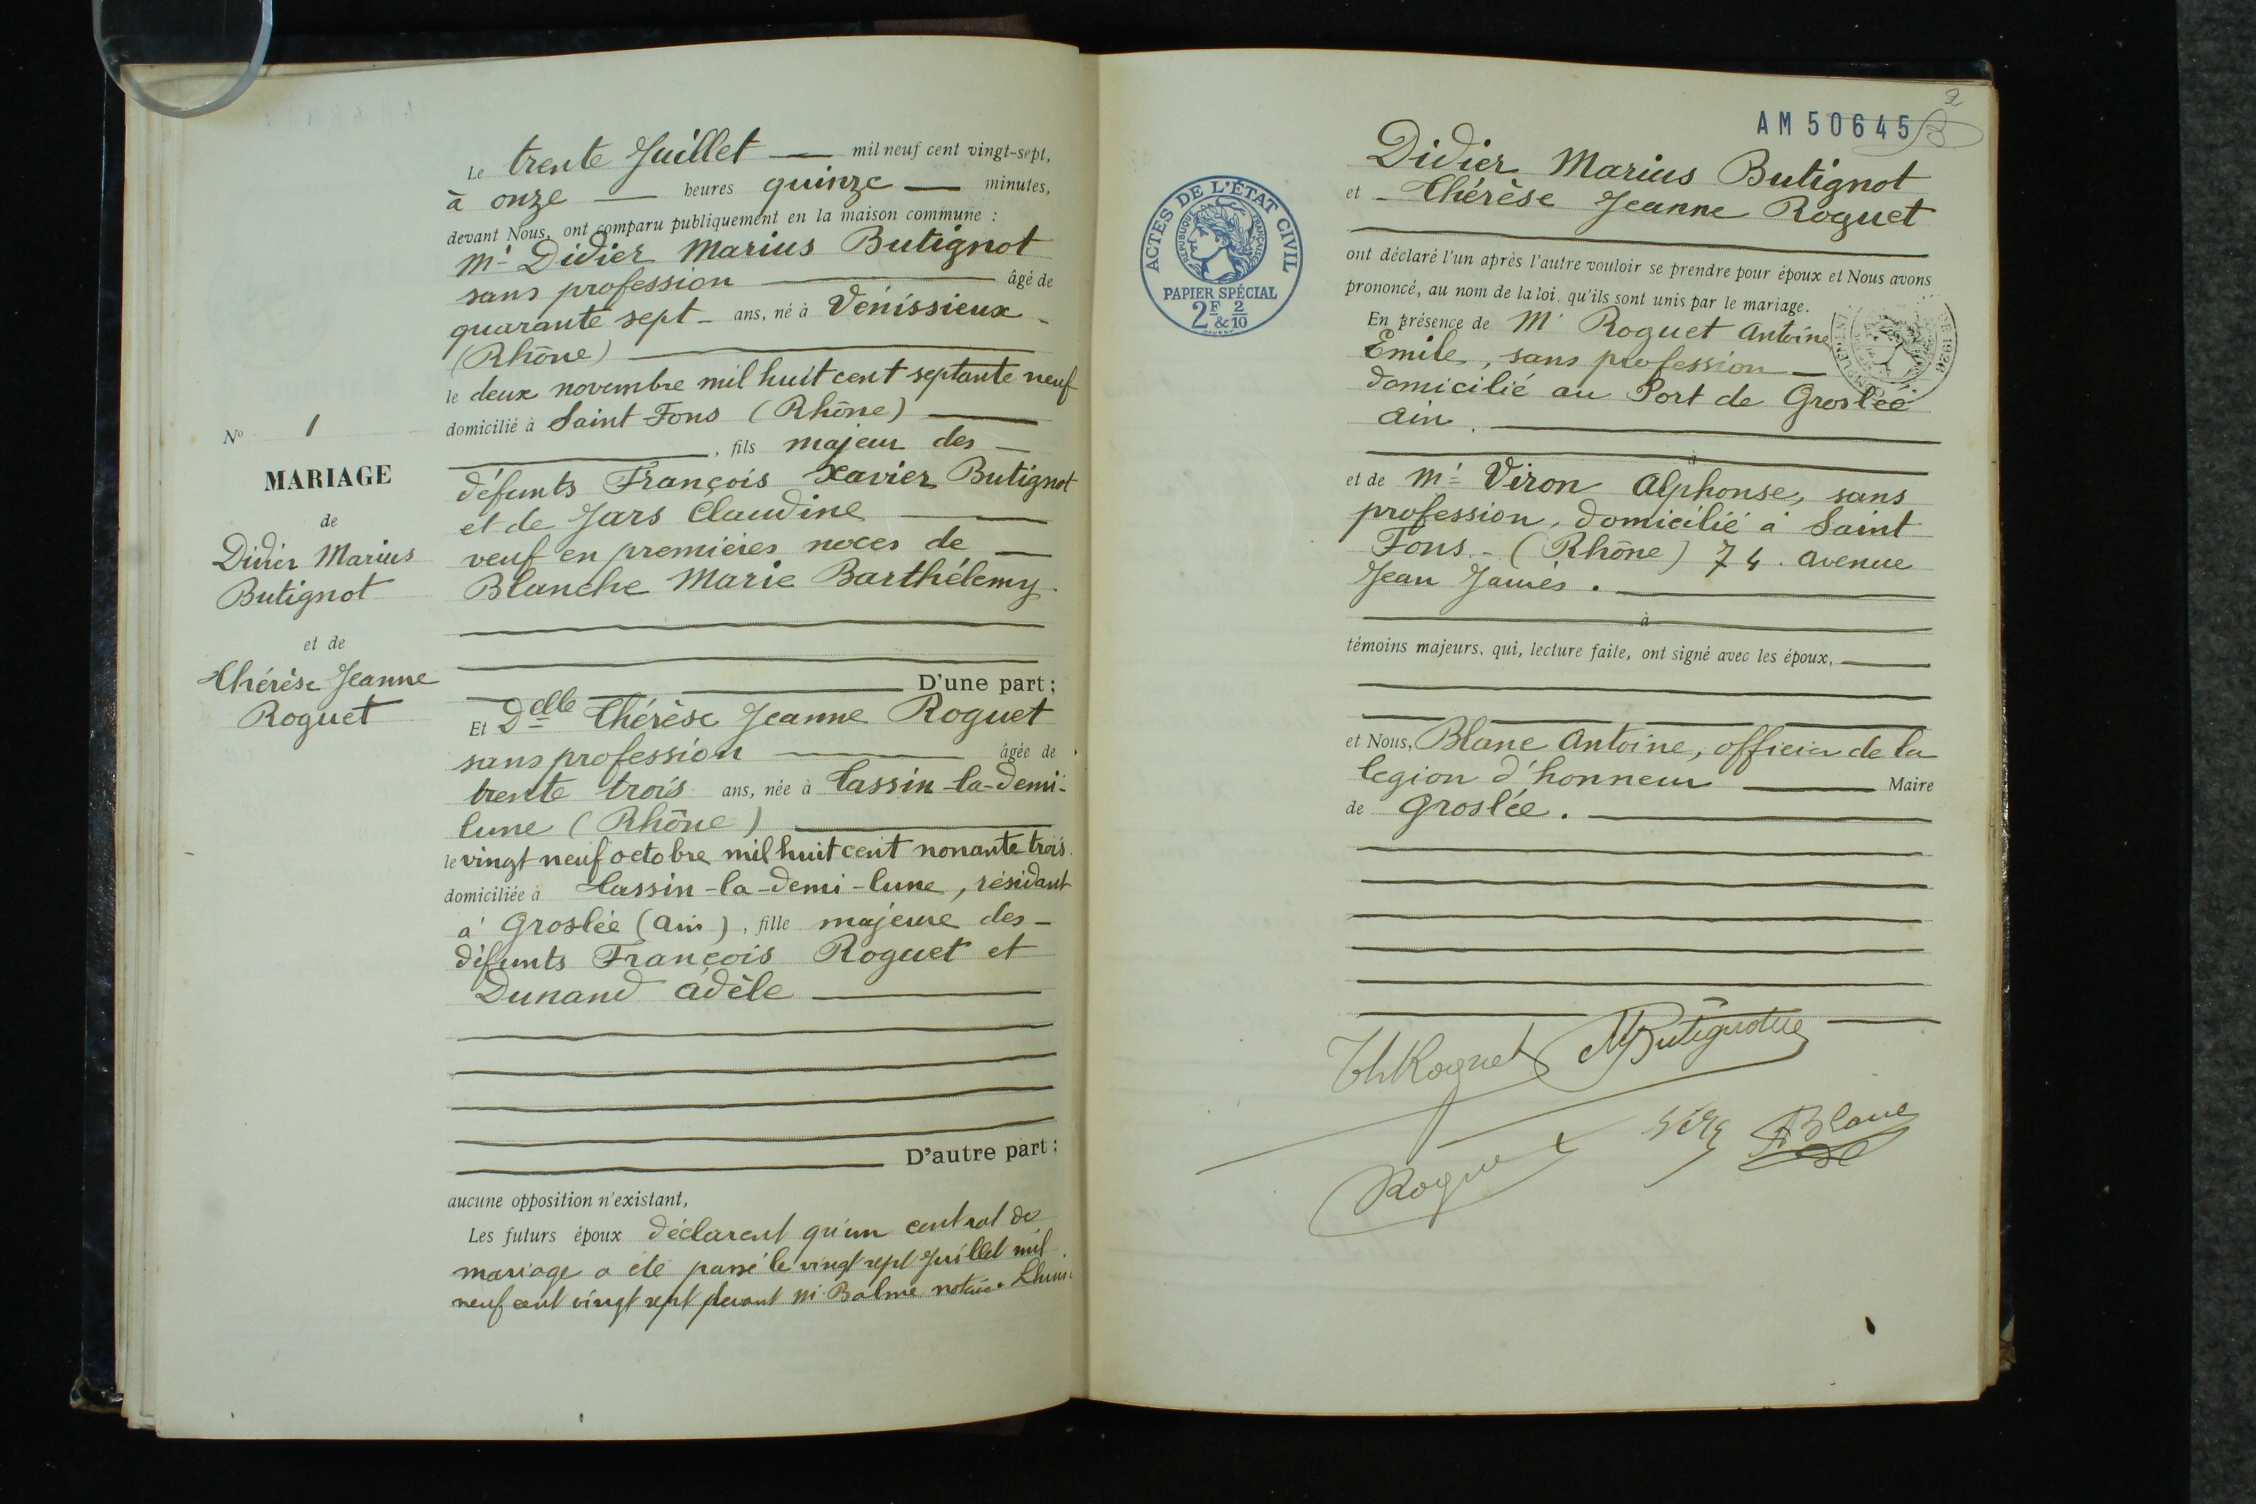 Le trente Juillet — mil neuf cent vingt-sept,
à onze — heures quinze — minutes,
devant Nous, ont comparu publiquement en la maison commune :
Mr Didier Marius Butignot
sans profession — âgé de
quarante sept - ans, né à Vénissieux -
(Rhône)
le deux novembre mil huit cent septante neuf
domicilié à Saint-Fons (Rhône)
, fils majeur des —
défunts François Xavier Butignot
et de Jars Claudine
veuf en premières noces de —
Blanche Marie Barthélemy.
D'une part ;
Et Delle Thérèse Jeanne Roguet
sans profession — âgée de
trente trois ans, née à Tassin-la-demi-
lune (Rhône)
le vingt neuf octobre mil huit cent nonante trois
domiciliée à Tassin-la-demi-lune, résidant
à Groslée (Ain), fille majeure des -
défunts François Roguet et
Dunand Adèle
D'autre part ;
aucune opposition n'existant,
Les futurs époux déclarent qu'un contrat de
mariage a été passé le vingt sept Juillet mil
neuf cent vingt sept devant Mr Balme notaire Lhuis
No 1
MARIAGE
de
Didier Marius
Butignot
et de
Thérèse Jeanne
Roguet
2
AM 50645
ACTES DE L'ÉTAT CIVIL
RÉPUBLIQUE FRANÇAISE
PAPIER SPÉCIAL
2F & 2/10
Didier Marius Butignot
et - Thérèse Jeanne Roguet
ont déclaré l'un après l'autre vouloir se prendre pour époux et Nous avons
prononcé, au nom de la loi, qu'ils sont unis par le mariage.
En présence de Mr Roguet Antoine
Emile, sans profession —
domicilié au Port de Groslée
Ain.
à
et de Mr Viron Alphonse, sans
profession, domicilié à Saint
Fons - (Rhône) 74. avenue
Jean Jaurès.
à
témoins majeurs, qui, lecture faite, ont signé avec les époux,
et Nous, Blanc Antoine, officier de la
legion d'honneur — Maire
de Groslée.
Th Roguet MButignot
Roguet ABlanc